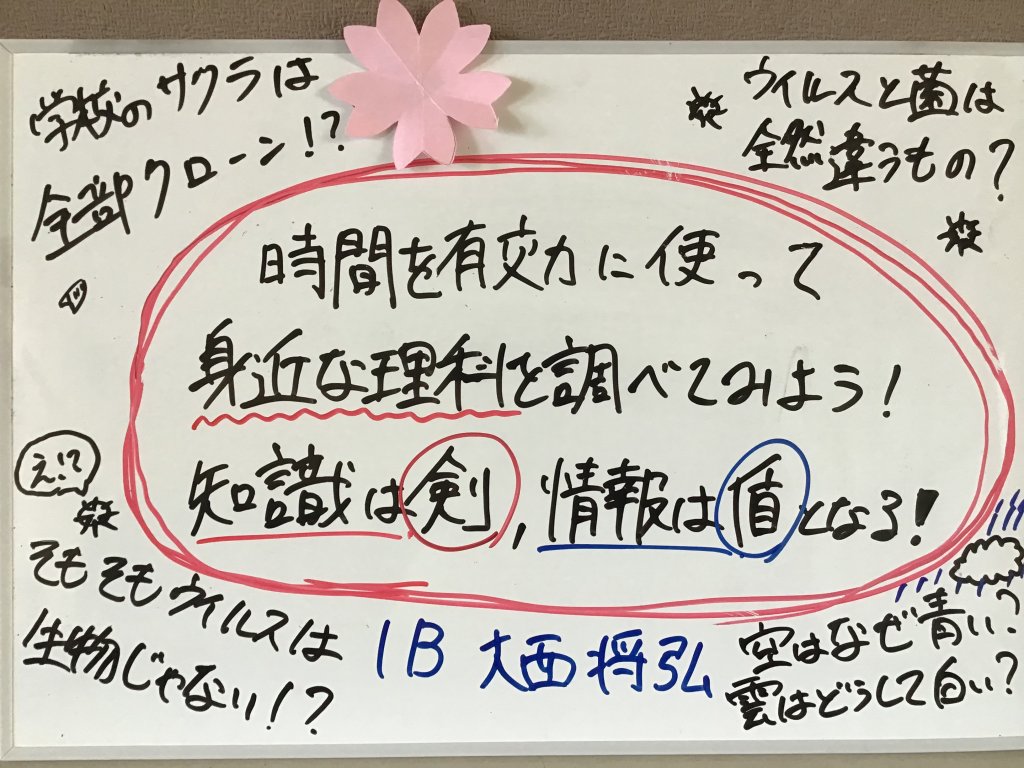 学校のサクラは
全部クローン!?
ウイルスと菌は
全然違うもの?
時間を有効に使って
身近な理科を調べてみよう!
知識は剣,情報は盾となる!
え!?
そもそもウイルスは
生物じゃない!?
1B 大西将弘
空はなぜ青い?
雲はどうして白い?